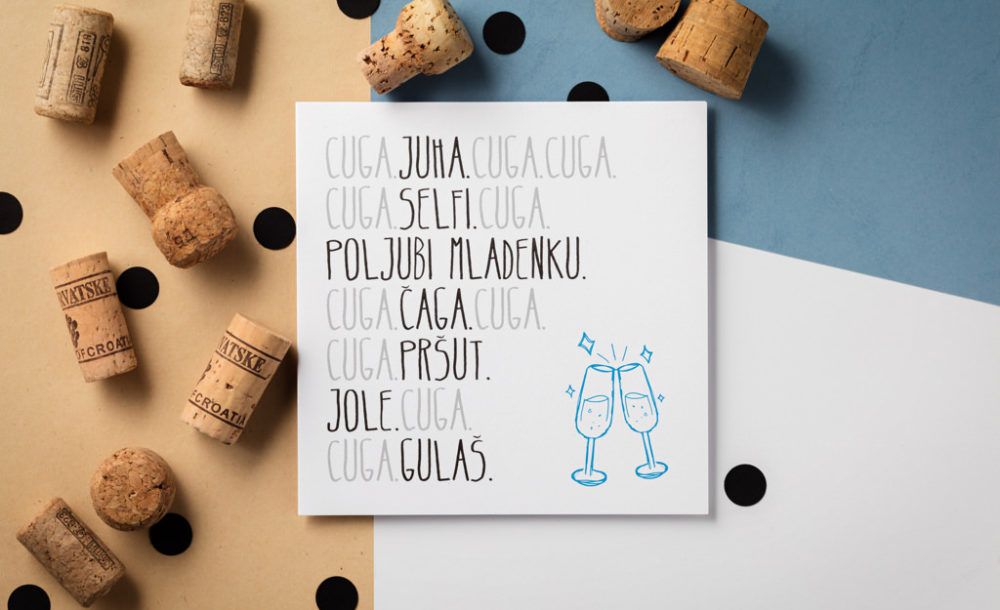 CUGA.JUHA.CUGA.CUGA.
CUGA.SELFI.CUGA.
POLJUBI MLADENKU.
CUGA.ČAGA.CUGA.
CUGA.PRŠUT.
JOLE.CUGA.
CUGA.GULAŠ.
RVATSKE
OFCROATI
VATSKE
OFCROATIA
813